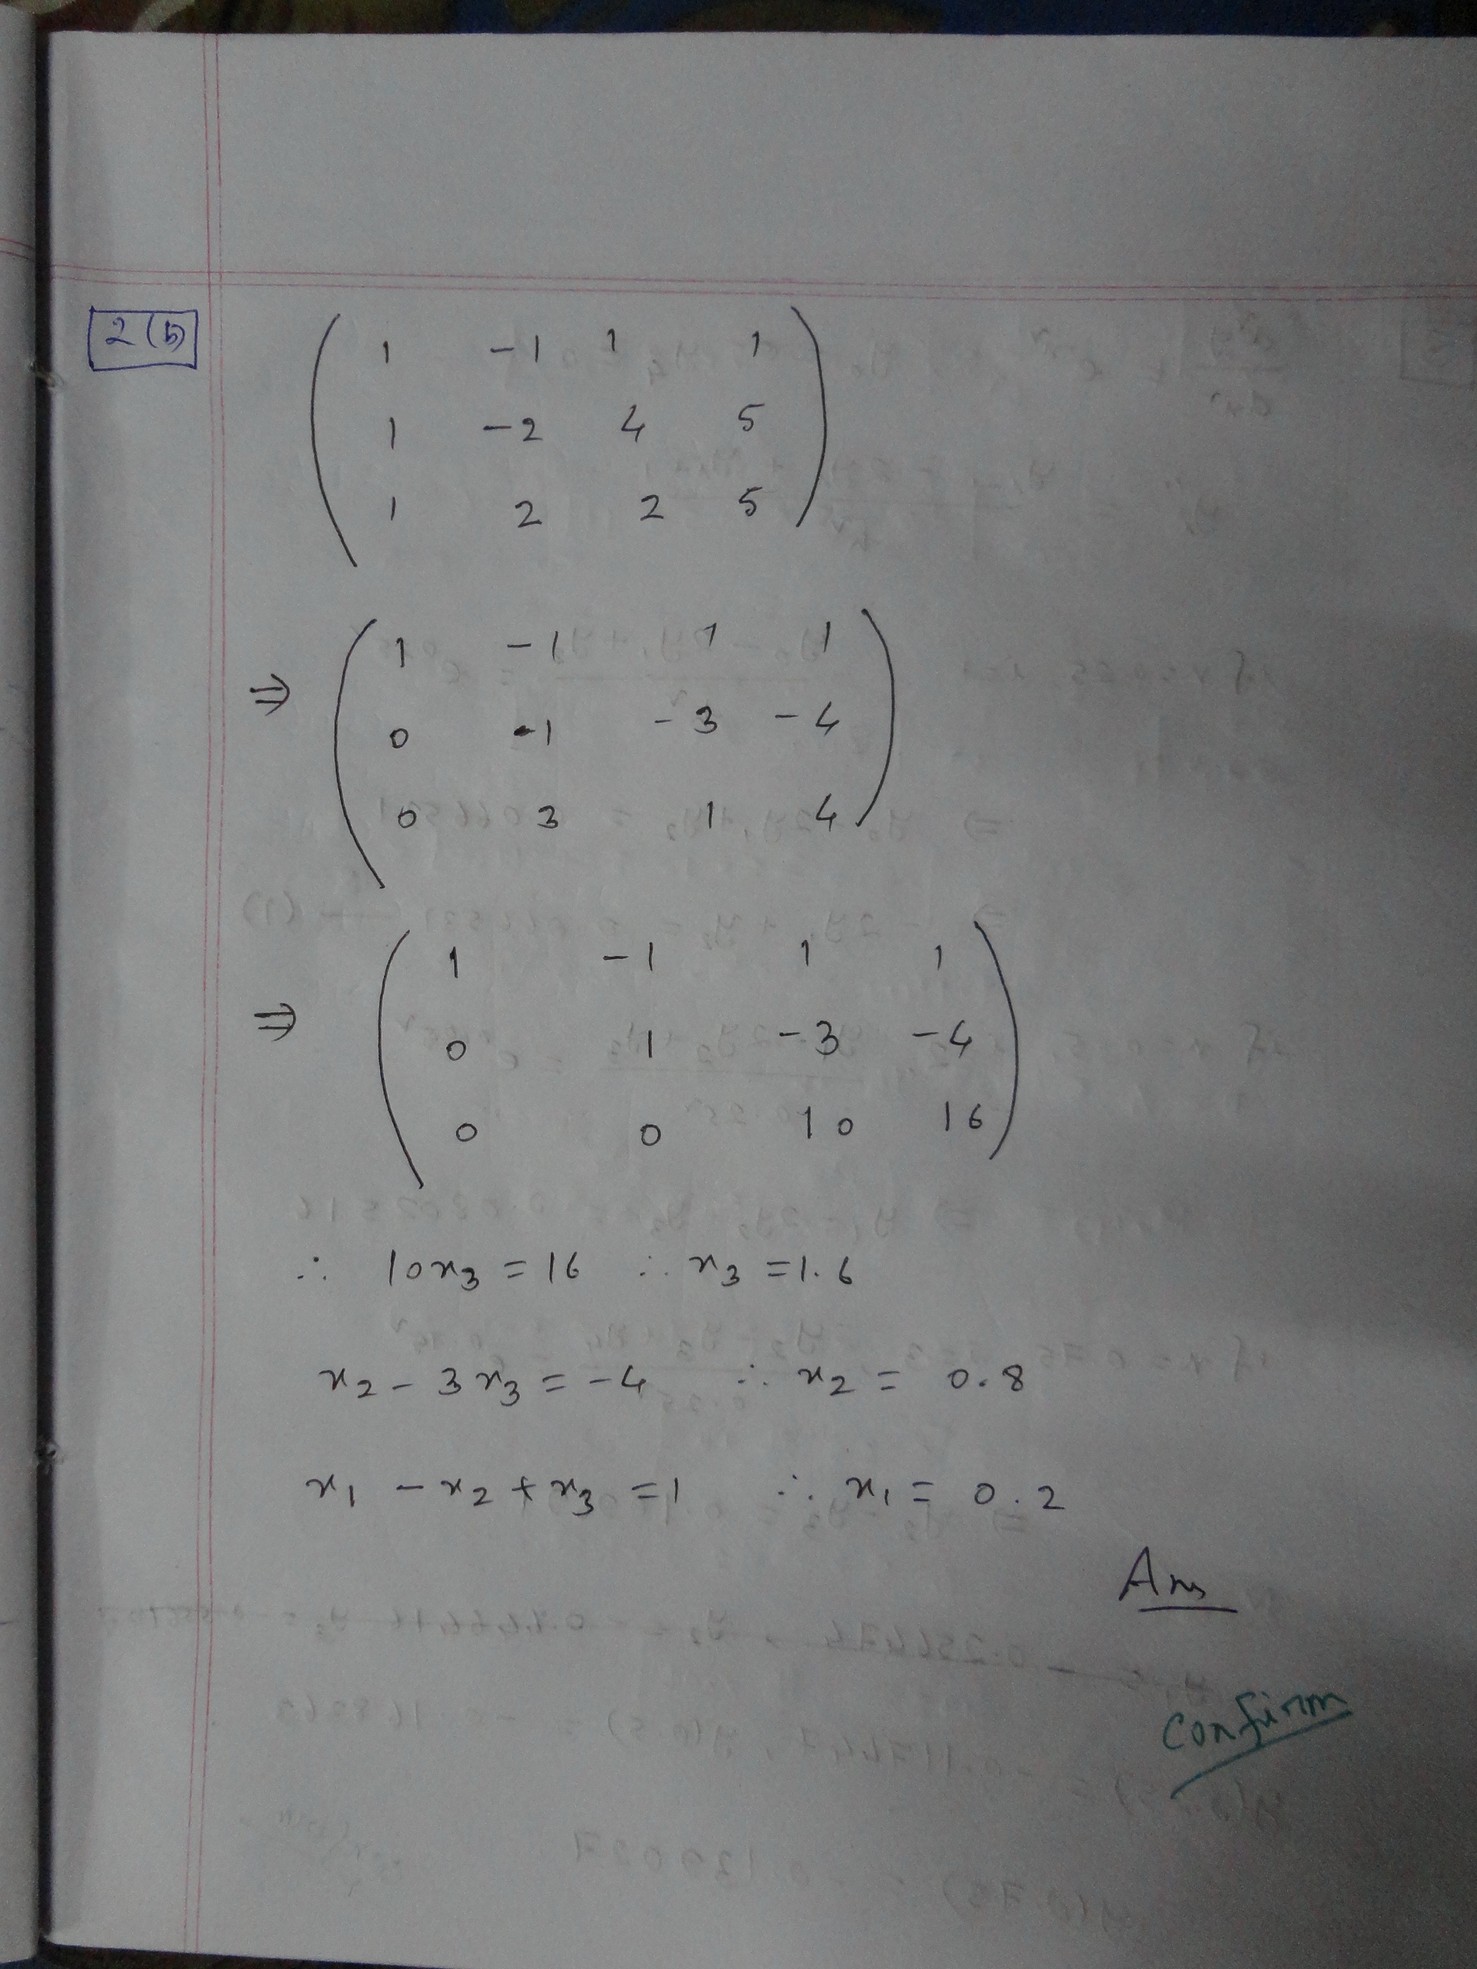 2(b)
1 -1 1 1
1 -2 4 5
1 2 2 5
⇒ 1 -1 1 1
0 -1 -3 -4
0 3 1 4
⇒ 1 -1 1 1
0 1 -3 -4
0 0 10 16
∴ 10x₃ = 16 ∴ x₃ = 1.6
x₂ - 3x₃ = -4 ∴ x₂ = 0.8
x₁ - x₂ + x₃ = 1 ∴ x₁ = 0.2
Ans
Confirm